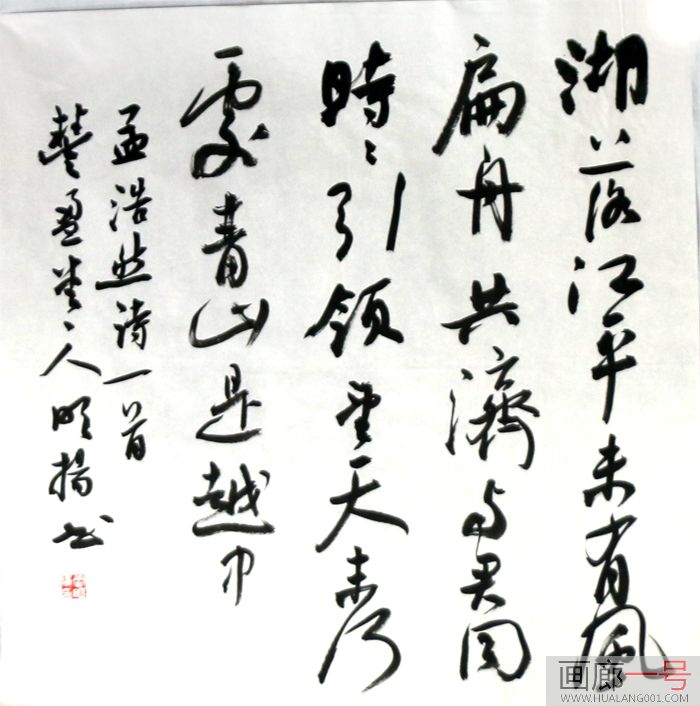 潮落江平未有風
扁舟共濟与君同
時時引領望天末何
處青山是越中
孟浩然诗一首
盈堂主人明揚书
画廊一号
WWW.HUALANG001.COM